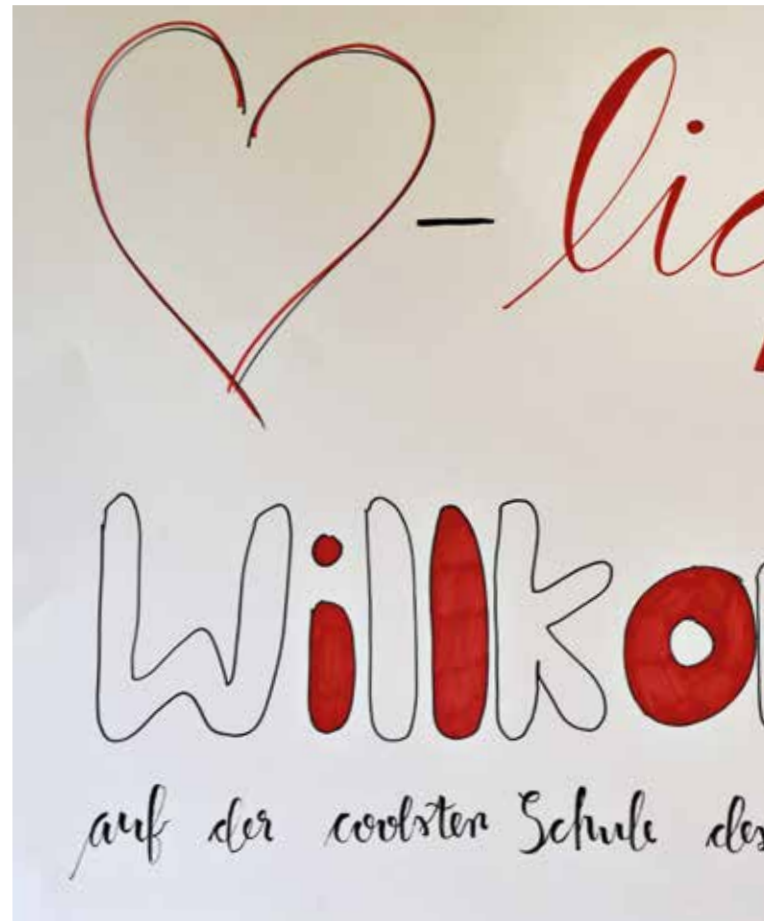 - lic
Willko
auf der coolsten Schule des